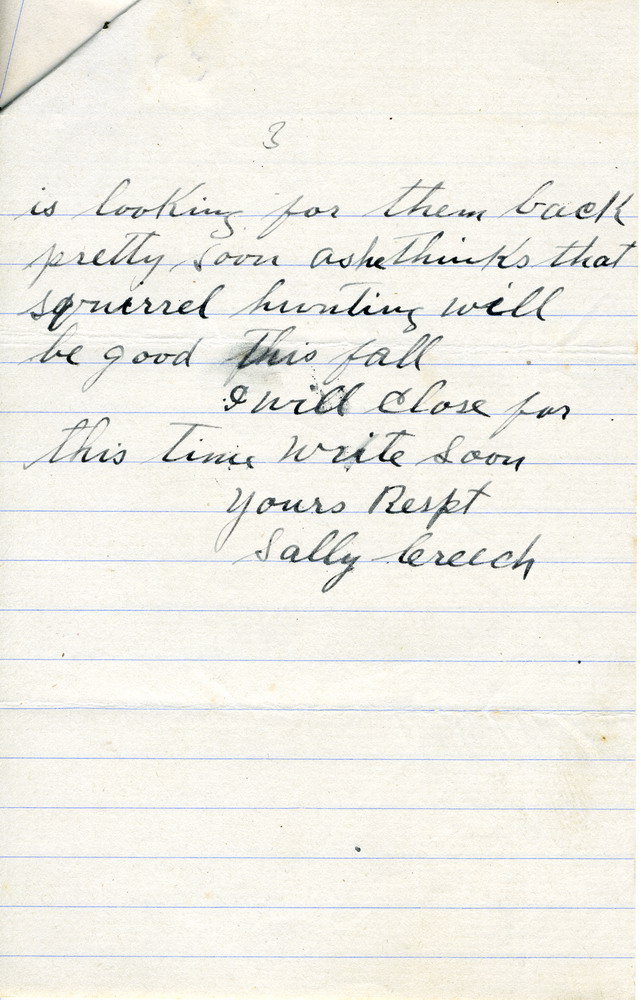 3
is looking for them back
pretty soon as he thinks that
squirrel hunting will
be good this fall
I will close for
this time write soon
Yours Respt
Sally Creech